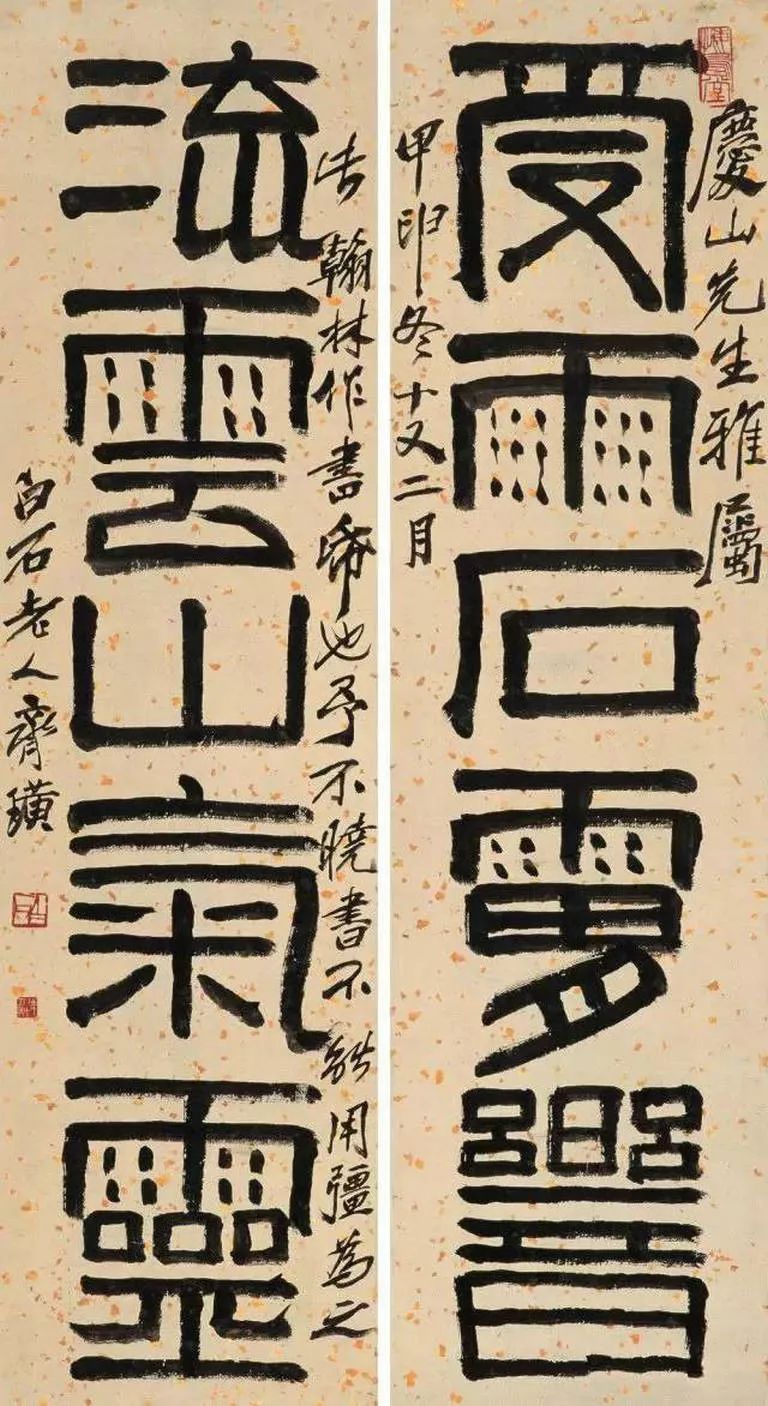 慶山先生雅屬
受雨石
甲申冬十又二月
翰林作書帋也予不曉書不能用彊為之
流雲山氣靈
白石老人齊璜